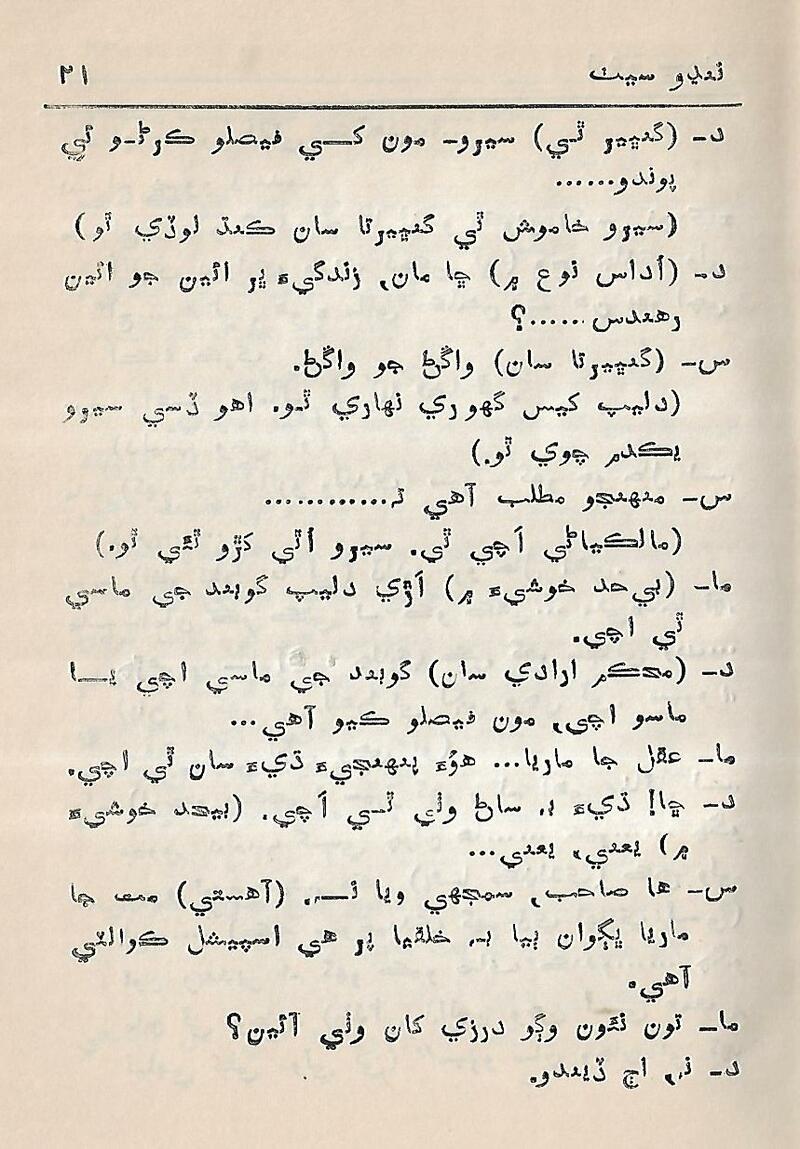 ننڍو سيٺ ٢١
د- (گنڀير ٿي) سيرو- مون کي فيصلو ڪرڻو ئي
پوندو......
(سيرو خاموش ٿي گنڀيرتا سان ڪنڌ لوڏي ٿو)
د- (اُداس نوع ۾) ڇا مان، زندگيءَ ڀر ائين جو ائين
رهندس......؟
س- (گنڀيرتا سان) واڱڻ جو واڱڻ.
(دليپ کيس گهوري نهاري ٿو. اهو ڏسي سيرو
يڪدم چوي ٿو.)
س- منهنجو مطلب آهي ته............
(مالڪياڻي اَچي ٿي. سيرو اُٿي کڙو ٿئي ٿو.)
ما- (بي حد خوشيءَ ۾) اَڙي دليپ گوبند جي ماسي
ٿي اچي.
د- (محڪم ارادي سان) گوبند جي ماسي اچي يا
ماسو اچي، مون فيصلو ڪيو آهي...
ما- عقل جا ماريا... هوءَ پنهنجيءَ ڌيءَ سان ٿي اچي.
د- ڇا! ڌيءَ به ساڻ وٺي ٿي اَچي. (بيحد خوشيءَ
۾) يعني، يعني...
س- ها صاحب، سمجهي ويا نه. (آهستي) مت جا
ماريا ڀڳوان ٻيا به خلقيا پر هي اسپيشل ڪوالٽي
آهي.
ما- تون نئون وڳو درزي کان وٺي آئين؟
د- نه، اڄ ڏيندو.